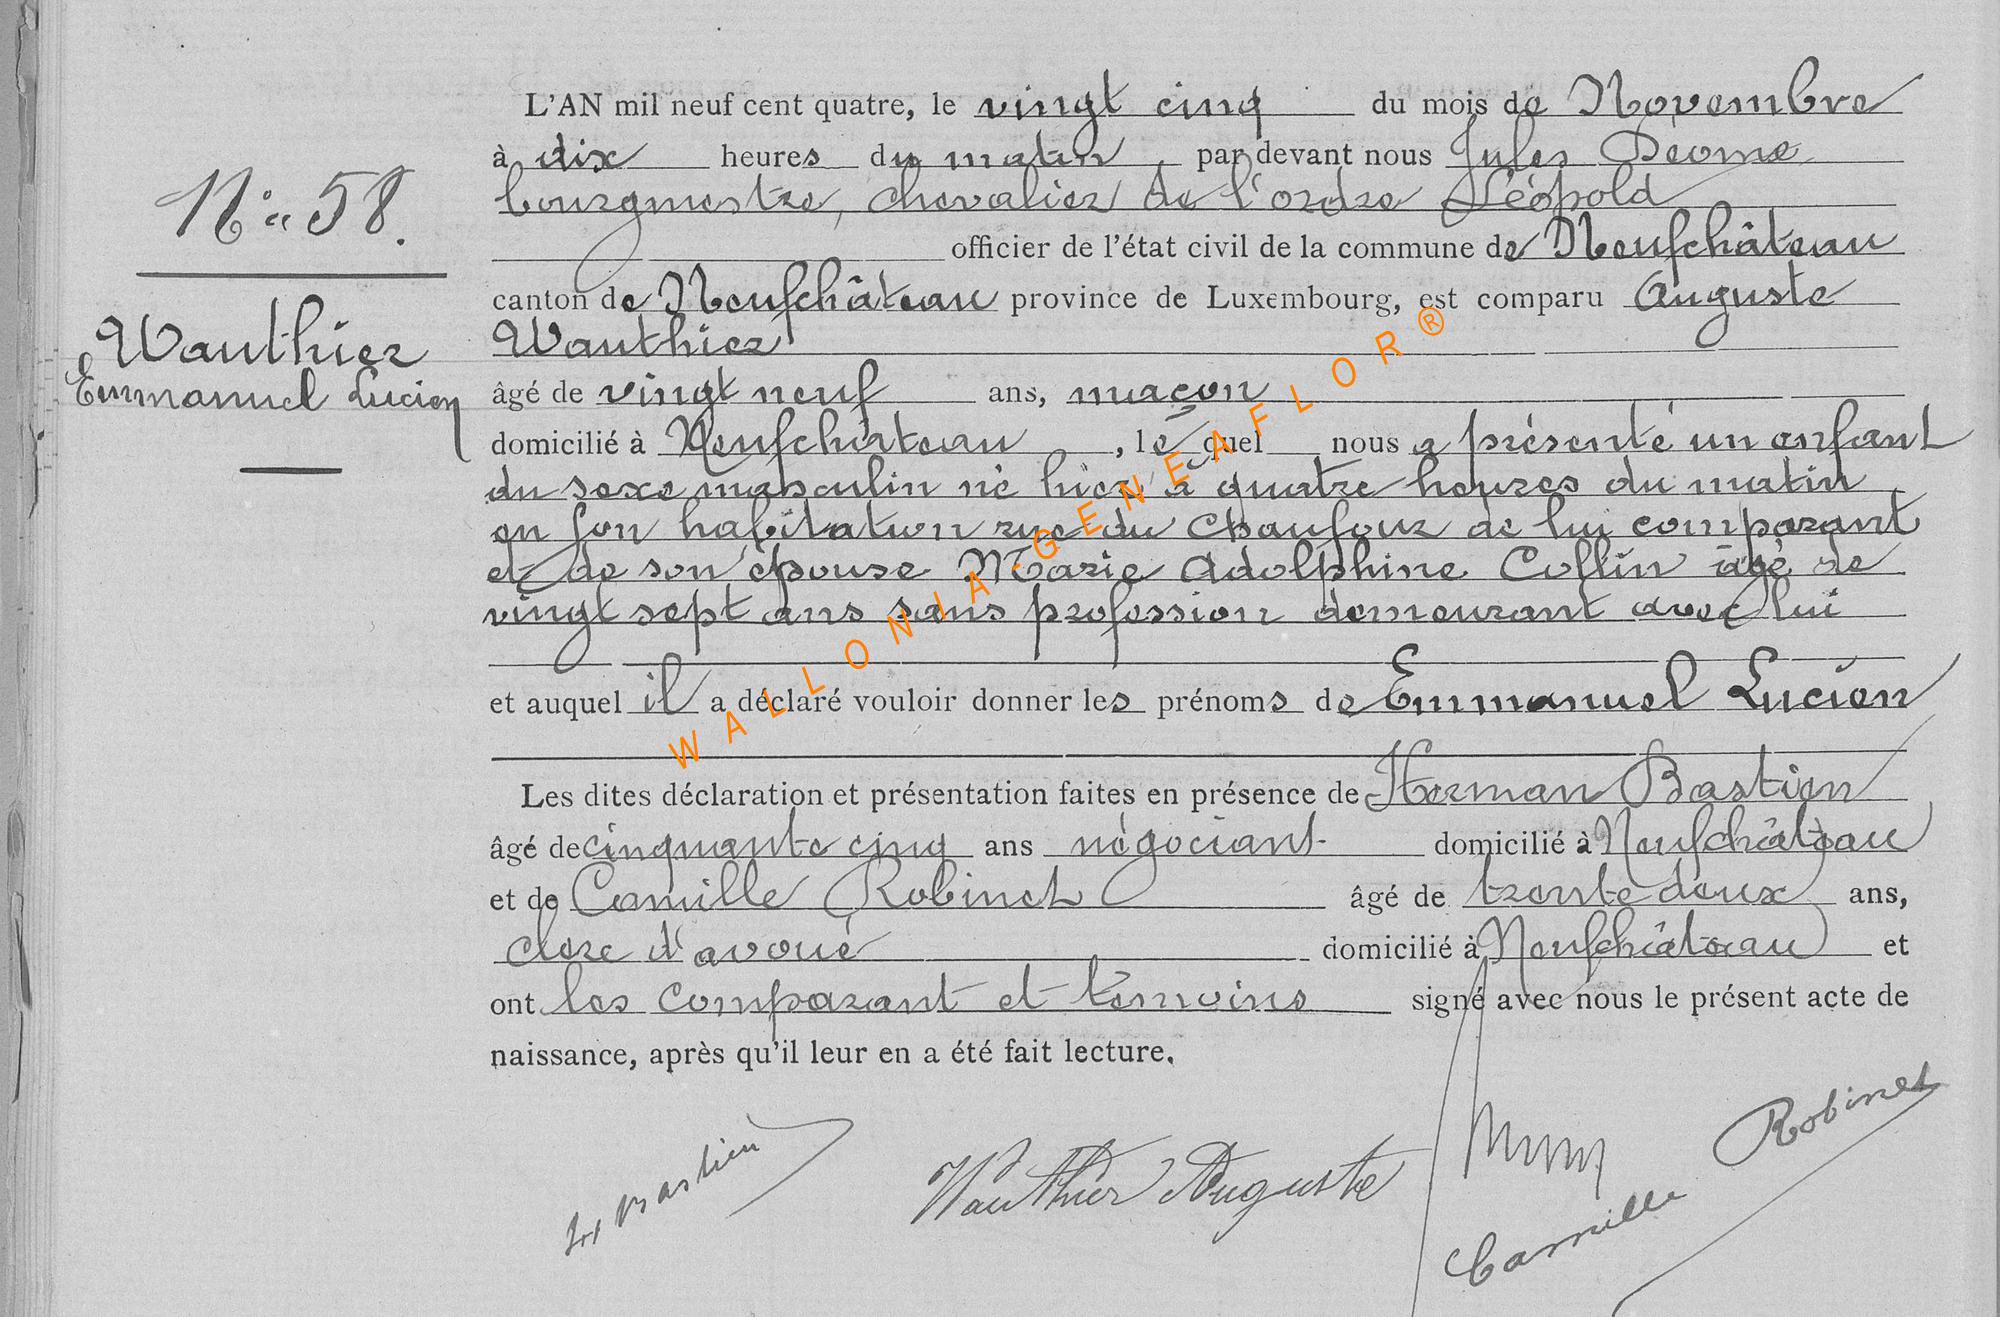 L'AN mil neuf cent quatre, le vingt cinq du mois de Novembre
à dix heures du matin, par devant nous Jules Déome
bourgmestre, chevalier de l'ordre Léopold
officier de l'état civil de la commune de Neufchâteau
canton de Neufchâteau province de Luxembourg, est comparu Auguste
Wauthier
âgé de vingt neuf ans, maçon
domicilié à Neufchâteau, lequel nous a présenté un enfant
du sexe masculin né hier à quatre heures du matin
en son habitation rue du Chaufour de lui comparant
et de son épouse Marie Adolphine Collin âgé de
vingt sept ans sans profession demeurant avec lui
et auquel il a déclaré vouloir donner les prénoms de Emmanuel Lucien
Les dites déclaration et présentation faites en présence de Herman Bastien
âgé de cinquante cinq ans négociant domicilié à Neufchâteau
et de Camille Robinet âgé de trente deux ans,
clerc d'avoué domicilié à Neufchâteau et
ont les comparant et témoins signé avec nous le présent acte de
naissance, après qu'il leur en a été fait lecture.
N° 58.
Wauthier
Emmanuel Lucien
H. Bastien
Wauthier Auguste
Camille Robinet
WALLONIA-GENEAFLOR®